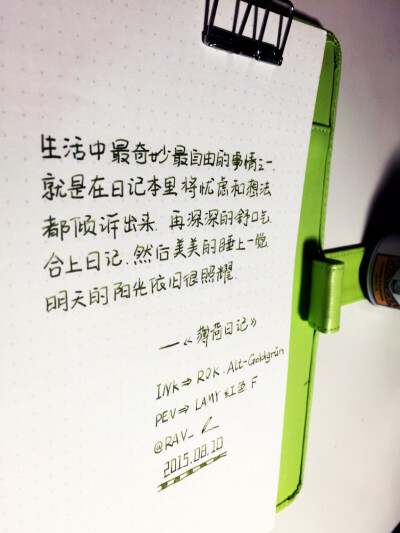 生活中最奇妙最自由的事情之一,
就是在日记本里将忧虑和想法
都倾诉出来.再深深的舒口气.
合上日记.然后美美的睡上一觉.
明天的阳光依旧很照耀.
—《薄荷日记》
INK⇒ ROK.Alt-Goldgrün
PEV⇒ LAMY 红 F
@RAV_
2015.08.10